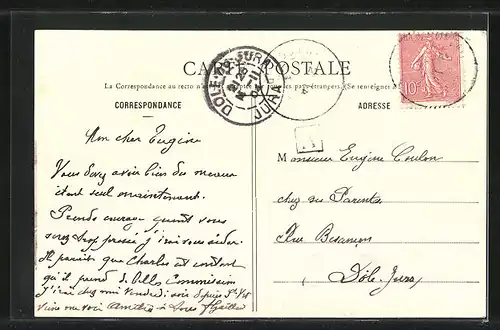 CARTE POSTALE
La Correspondance au recto n'est pas acceptée par tous les pays étrangers. (Se renseigner
CORRESPONDANCE
ADRESSE
DOLE-DU-JURA
JURA
10
Mon cher Eugène
Vous devez avoir bien du
étant seul maintenant.
Prendre courage quand vous
serez trop pressé j'irai vous aider.
Il paraît que Charles est content
qu'il prend de belles Commission
J'irai chez moi Vendredi soir
Viens me voir Amitiés à tous
Monsieur Eugène Coulon
chez ses Parents
Rue Besançon
Dôle-Jura